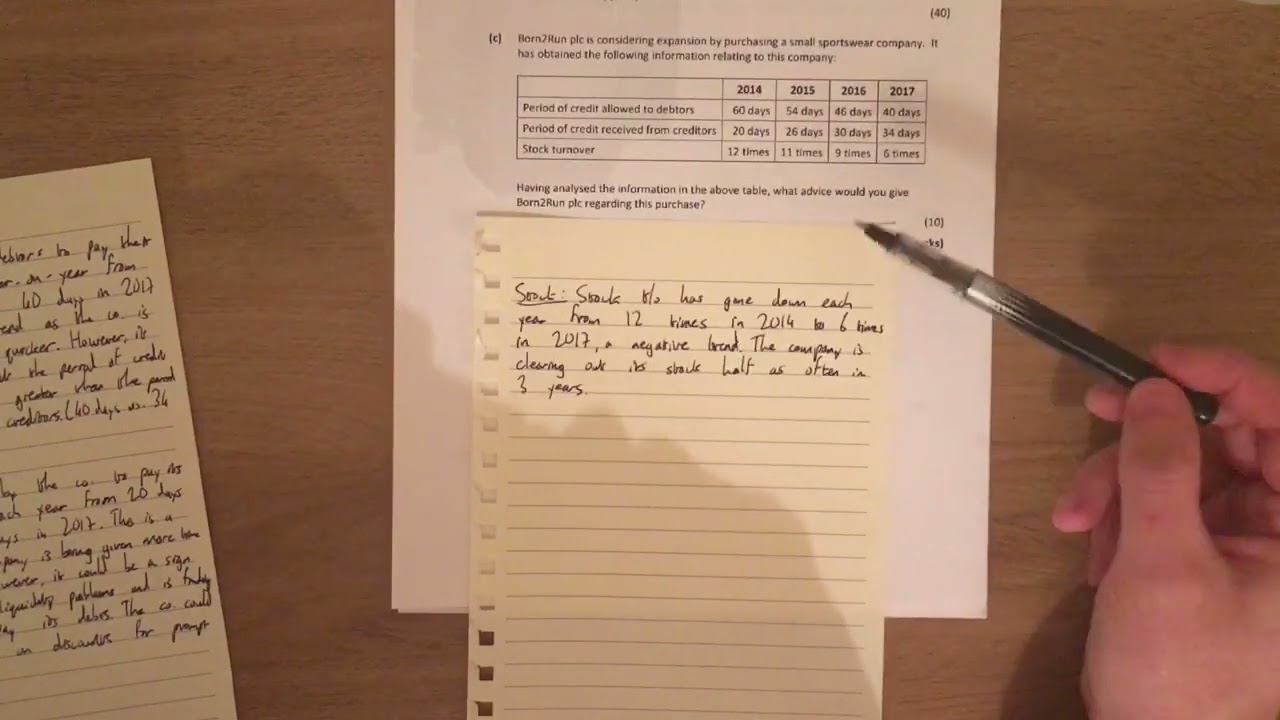 (40)
(c) Born2Run plc is considering expansion by purchasing a small sportswear company. It
has obtained the following information relating to this company:
2014 2015 2016 2017
Period of credit allowed to debtors 60 days 54 days 46 days 40 days
Period of credit received from creditors 20 days 26 days 30 days 34 days
Stock turnover 12 times 11 times 9 times 6 times
Having analysed the information in the above table, what advice would you give
Born2Run plc regarding this purchase?
(10)
ks)
debtors to pay their
year-on-year from
40 days in 2017
as the co. is
quicker. However, it
the period of credit
greater than the period
creditors. (40 days vs. 34
by the co. to pay its
each year from 20 days
in 2017. This is a
is being given more time
it could be a sign
liquidity problems and is finding
its debts. The co. could
on discounts for prompt
Stock: Stock t/o has gone down each
year from 12 times in 2014 to 6 times
in 2017, a negative trend. The company is
clearing out its stock half as often in
3 years.